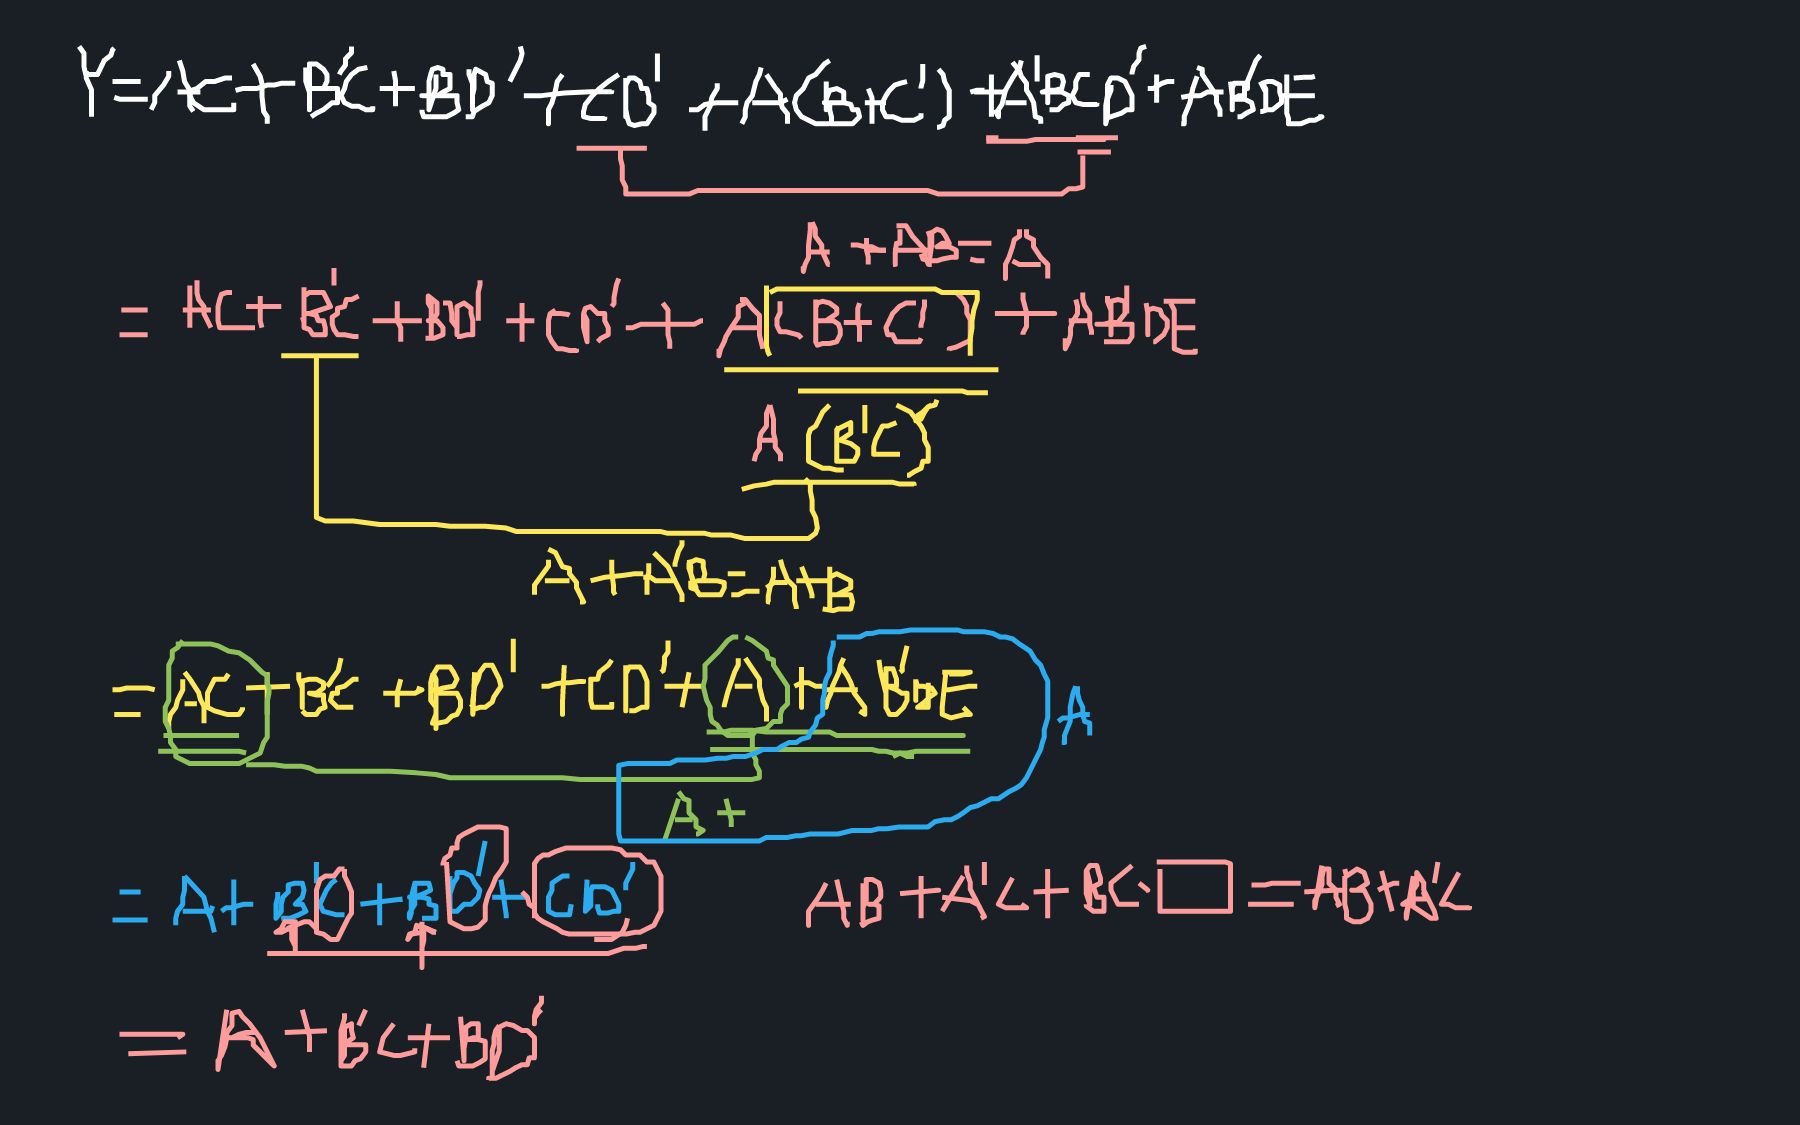 Y=AC+B'C+BD'+CD'+A(B+C')+A'BCD'+AB'DE
A+AB=A
=AC+B'C+BD'+CD'+A(B+C')+AB'DE
A(B'C)'
A+A'B=A+B
=AC+B'C+BD'+CD'+A+AB'DE
A
A+
=A+B'C+BD'+CD'
AB+A'C+BC·□=AB+A'C
=A+B'C+BD'